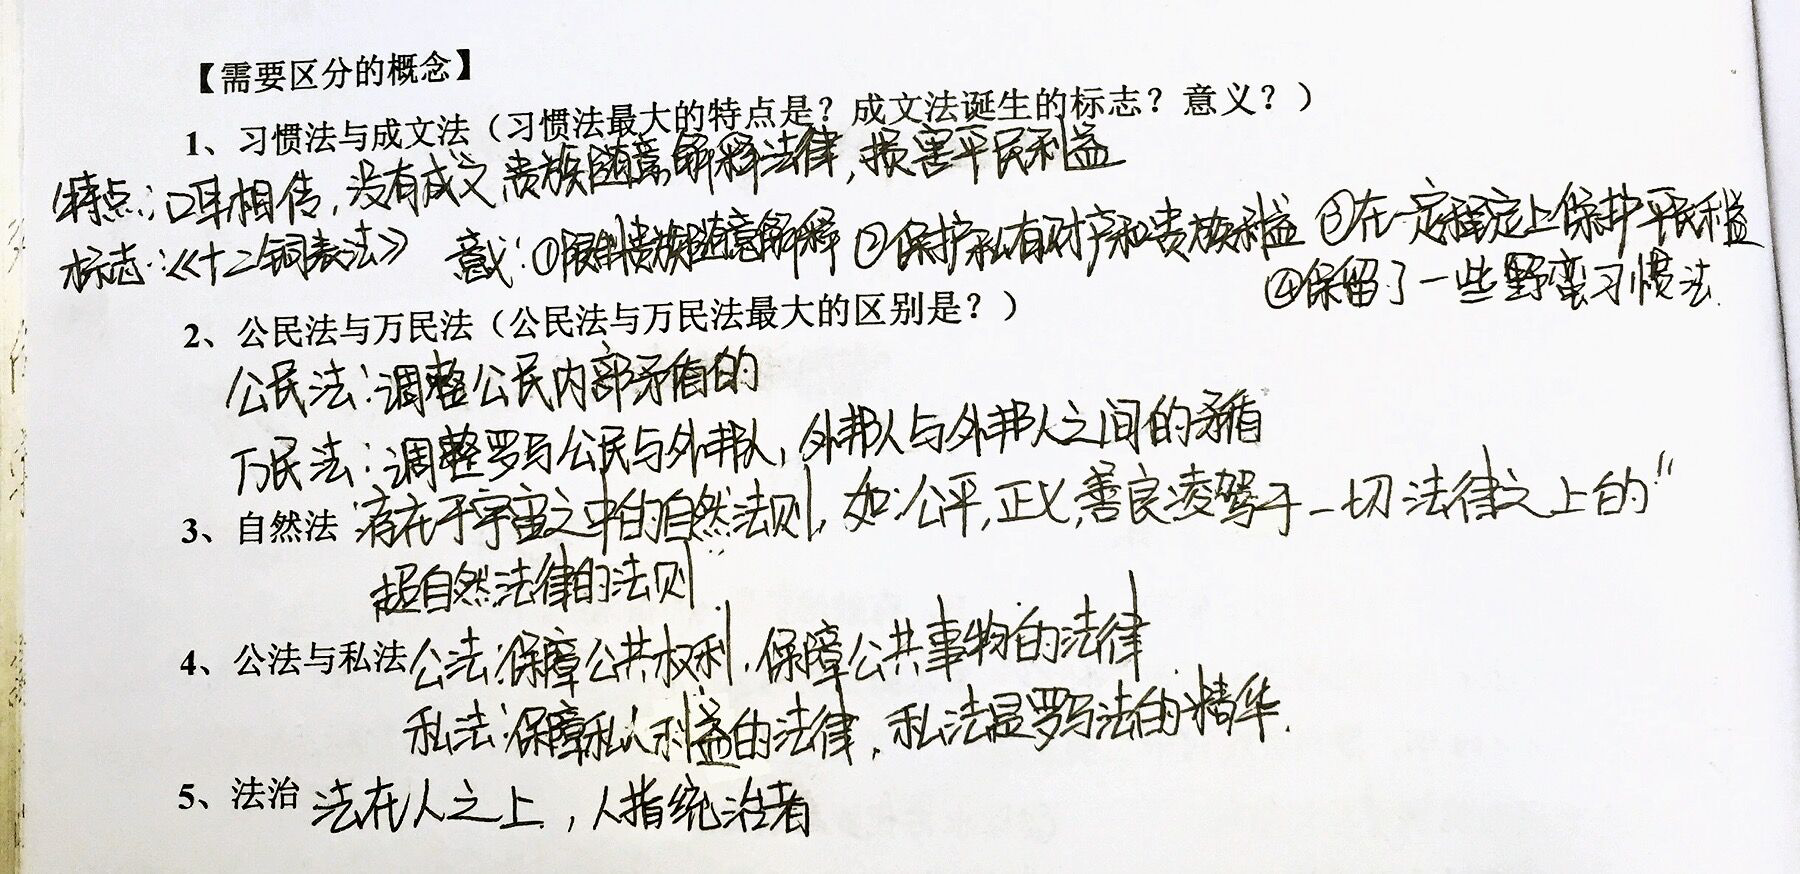 【需要区分的概念】
1、习惯法与成文法（习惯法最大的特点是？成文法诞生的标志？意义？）
特点：口耳相传，没有成文，贵族随意解释法律，损害平民利益
标志：《十二铜表法》 意义：①限制贵族随意解释 ②保护私有财产和贵族利益 ③在一定程度上保护平民利益
④保留了一些野蛮习惯法.
2、公民法与万民法（公民法与万民法最大的区别是？）
公民法：调整公民内部矛盾的
万民法：调整罗马公民与外邦人，外邦人与外邦人之间的矛盾
3、自然法 存在于宇宙之中的自然法则，如：公平，正义，善良凌驾于一切法律之上的"
超自然法律的法则.
4、公法与私法 公法：保障公共权利，保障公共事物的法律
私法：保障私人利益的法律，私法是罗马法的精华.
5、法治 法在人之上，人指统治者